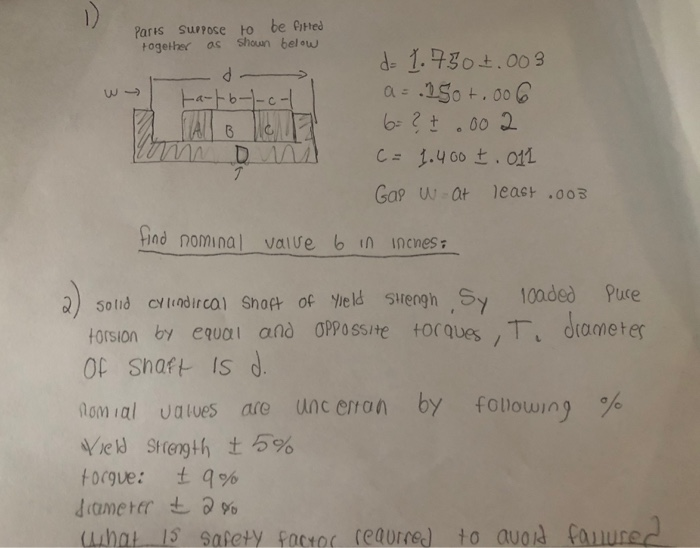 1)
Parts suppose to be fitted
together as shown below
d
w → -a- -b- -c-
A B C
D
d= 1.750 ± .003
a = .250 ± .006
b= ? ± .002
c = 1.400 ± .011
Gap w at least .003
find nominal value b in inches:
2) solid cylindircal shaft of yield strengh, Sy loaded pure
torsion by equal and oppossite torques, T. diameter
of shaft is d.
nomial values are uncertan by following %
Yield strength ± 5%
torque: ± 9%
diameter ± 2%
what is safety factor required to avoid failure?